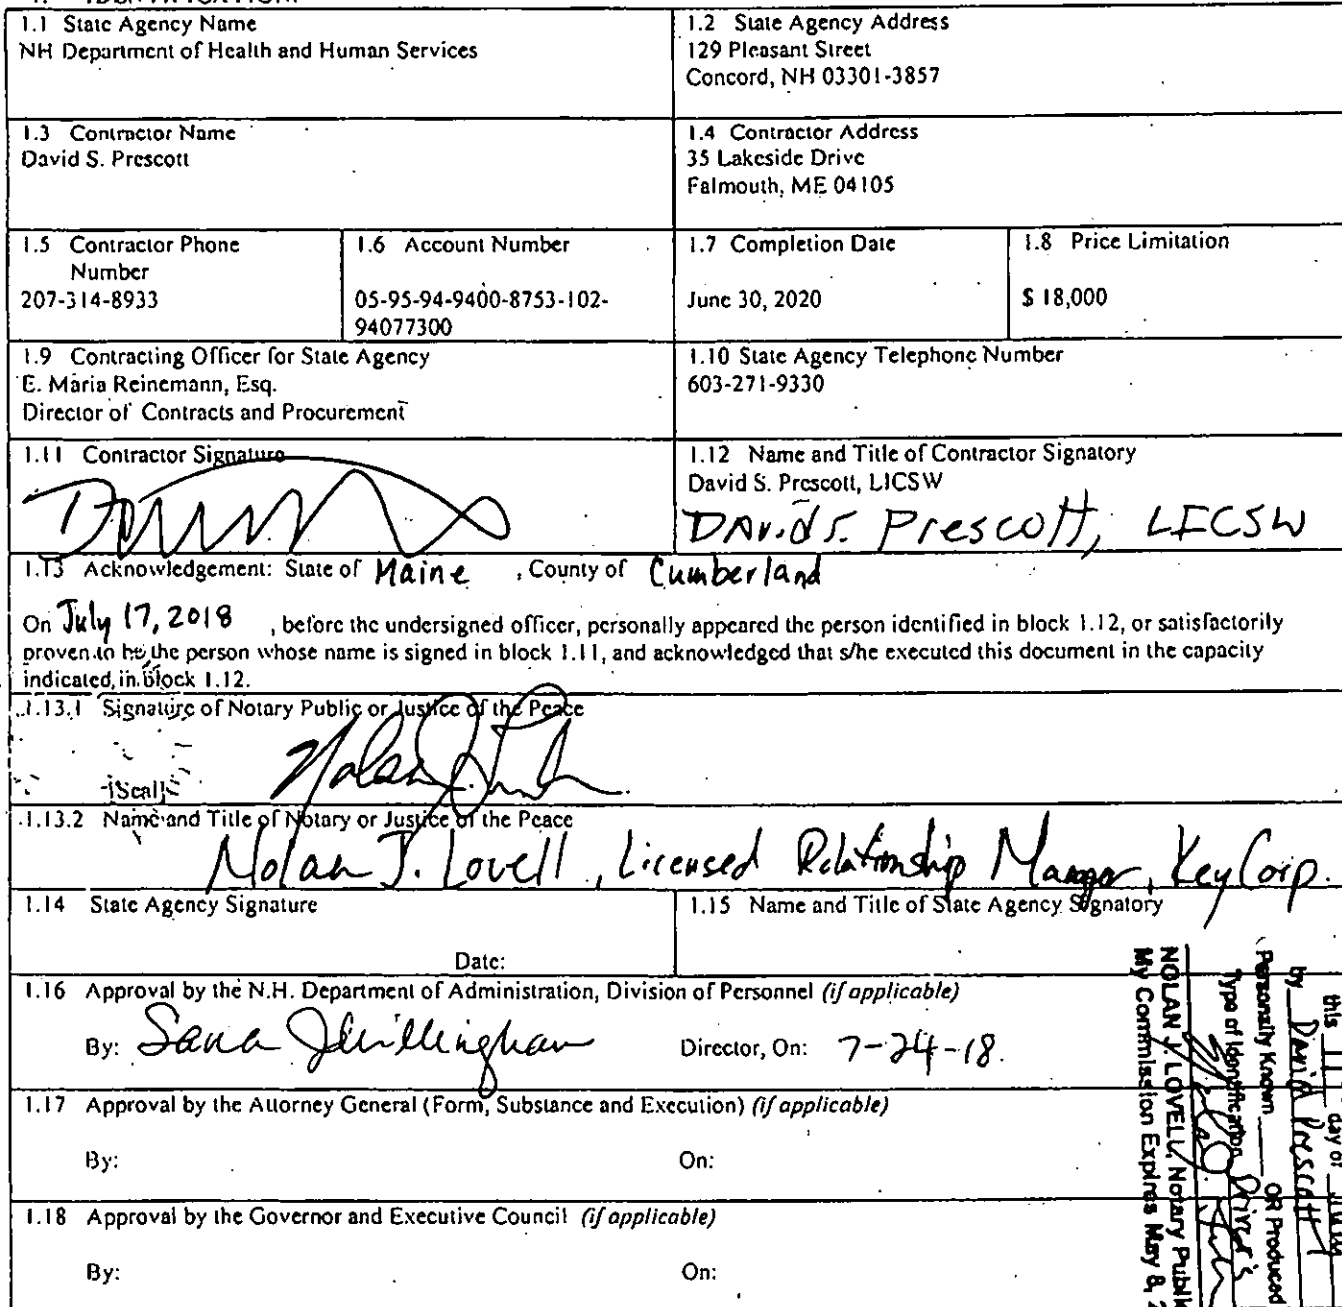 1.1 State Agency Name
NH Department of Health and Human Services
1.2 State Agency Address
129 Pleasant Street
Concord, NH 03301-3857
1.3 Contractor Name
David S. Prescott
1.4 Contractor Address
35 Lakeside Drive
Falmouth, ME 04105
1.5 Contractor Phone
Number
207-314-8933
1.6 Account Number
05-95-94-9400-8753-102-
94077300
1.7 Completion Date
June 30, 2020
1.8 Price Limitation
$ 18,000
1.9 Contracting Officer for State Agency
E. Maria Reinemann, Esq.
Director of Contracts and Procurement
1.10 State Agency Telephone Number
603-271-9330
1.11 Contractor Signature
1.12 Name and Title of Contractor Signatory
David S. Prescott, LICSW
DAvid S. Prescott, LICSW
1.13 Acknowledgement: State of Maine , County of Cumberland
On July 17, 2018 , before the undersigned officer, personally appeared the person identified in block 1.12, or satisfactorily
proven to be the person whose name is signed in block 1.11, and acknowledged that s/he executed this document in the capacity
indicated in block 1.12.
1.13.1 Signature of Notary Public or Justice of the Peace
[Seal]
1.13.2 Name and Title of Notary or Justice of the Peace
Nolan J. Lovell, Licensed Relationship Manager, KeyCorp.
1.14 State Agency Signature
Date:
1.15 Name and Title of State Agency Signatory
1.16 Approval by the N.H. Department of Administration, Division of Personnel (if applicable)
By: Director, On: 7-24-18.
1.17 Approval by the Attorney General (Form, Substance and Execution) (if applicable)
By: On:
1.18 Approval by the Governor and Executive Council (if applicable)
By: On:
this day of
by David Prescott
Personally Known OR Produced
Type of Identification Driver's
NOLAN J. LOVELL, Notary Public
My Commission Expires May 8,